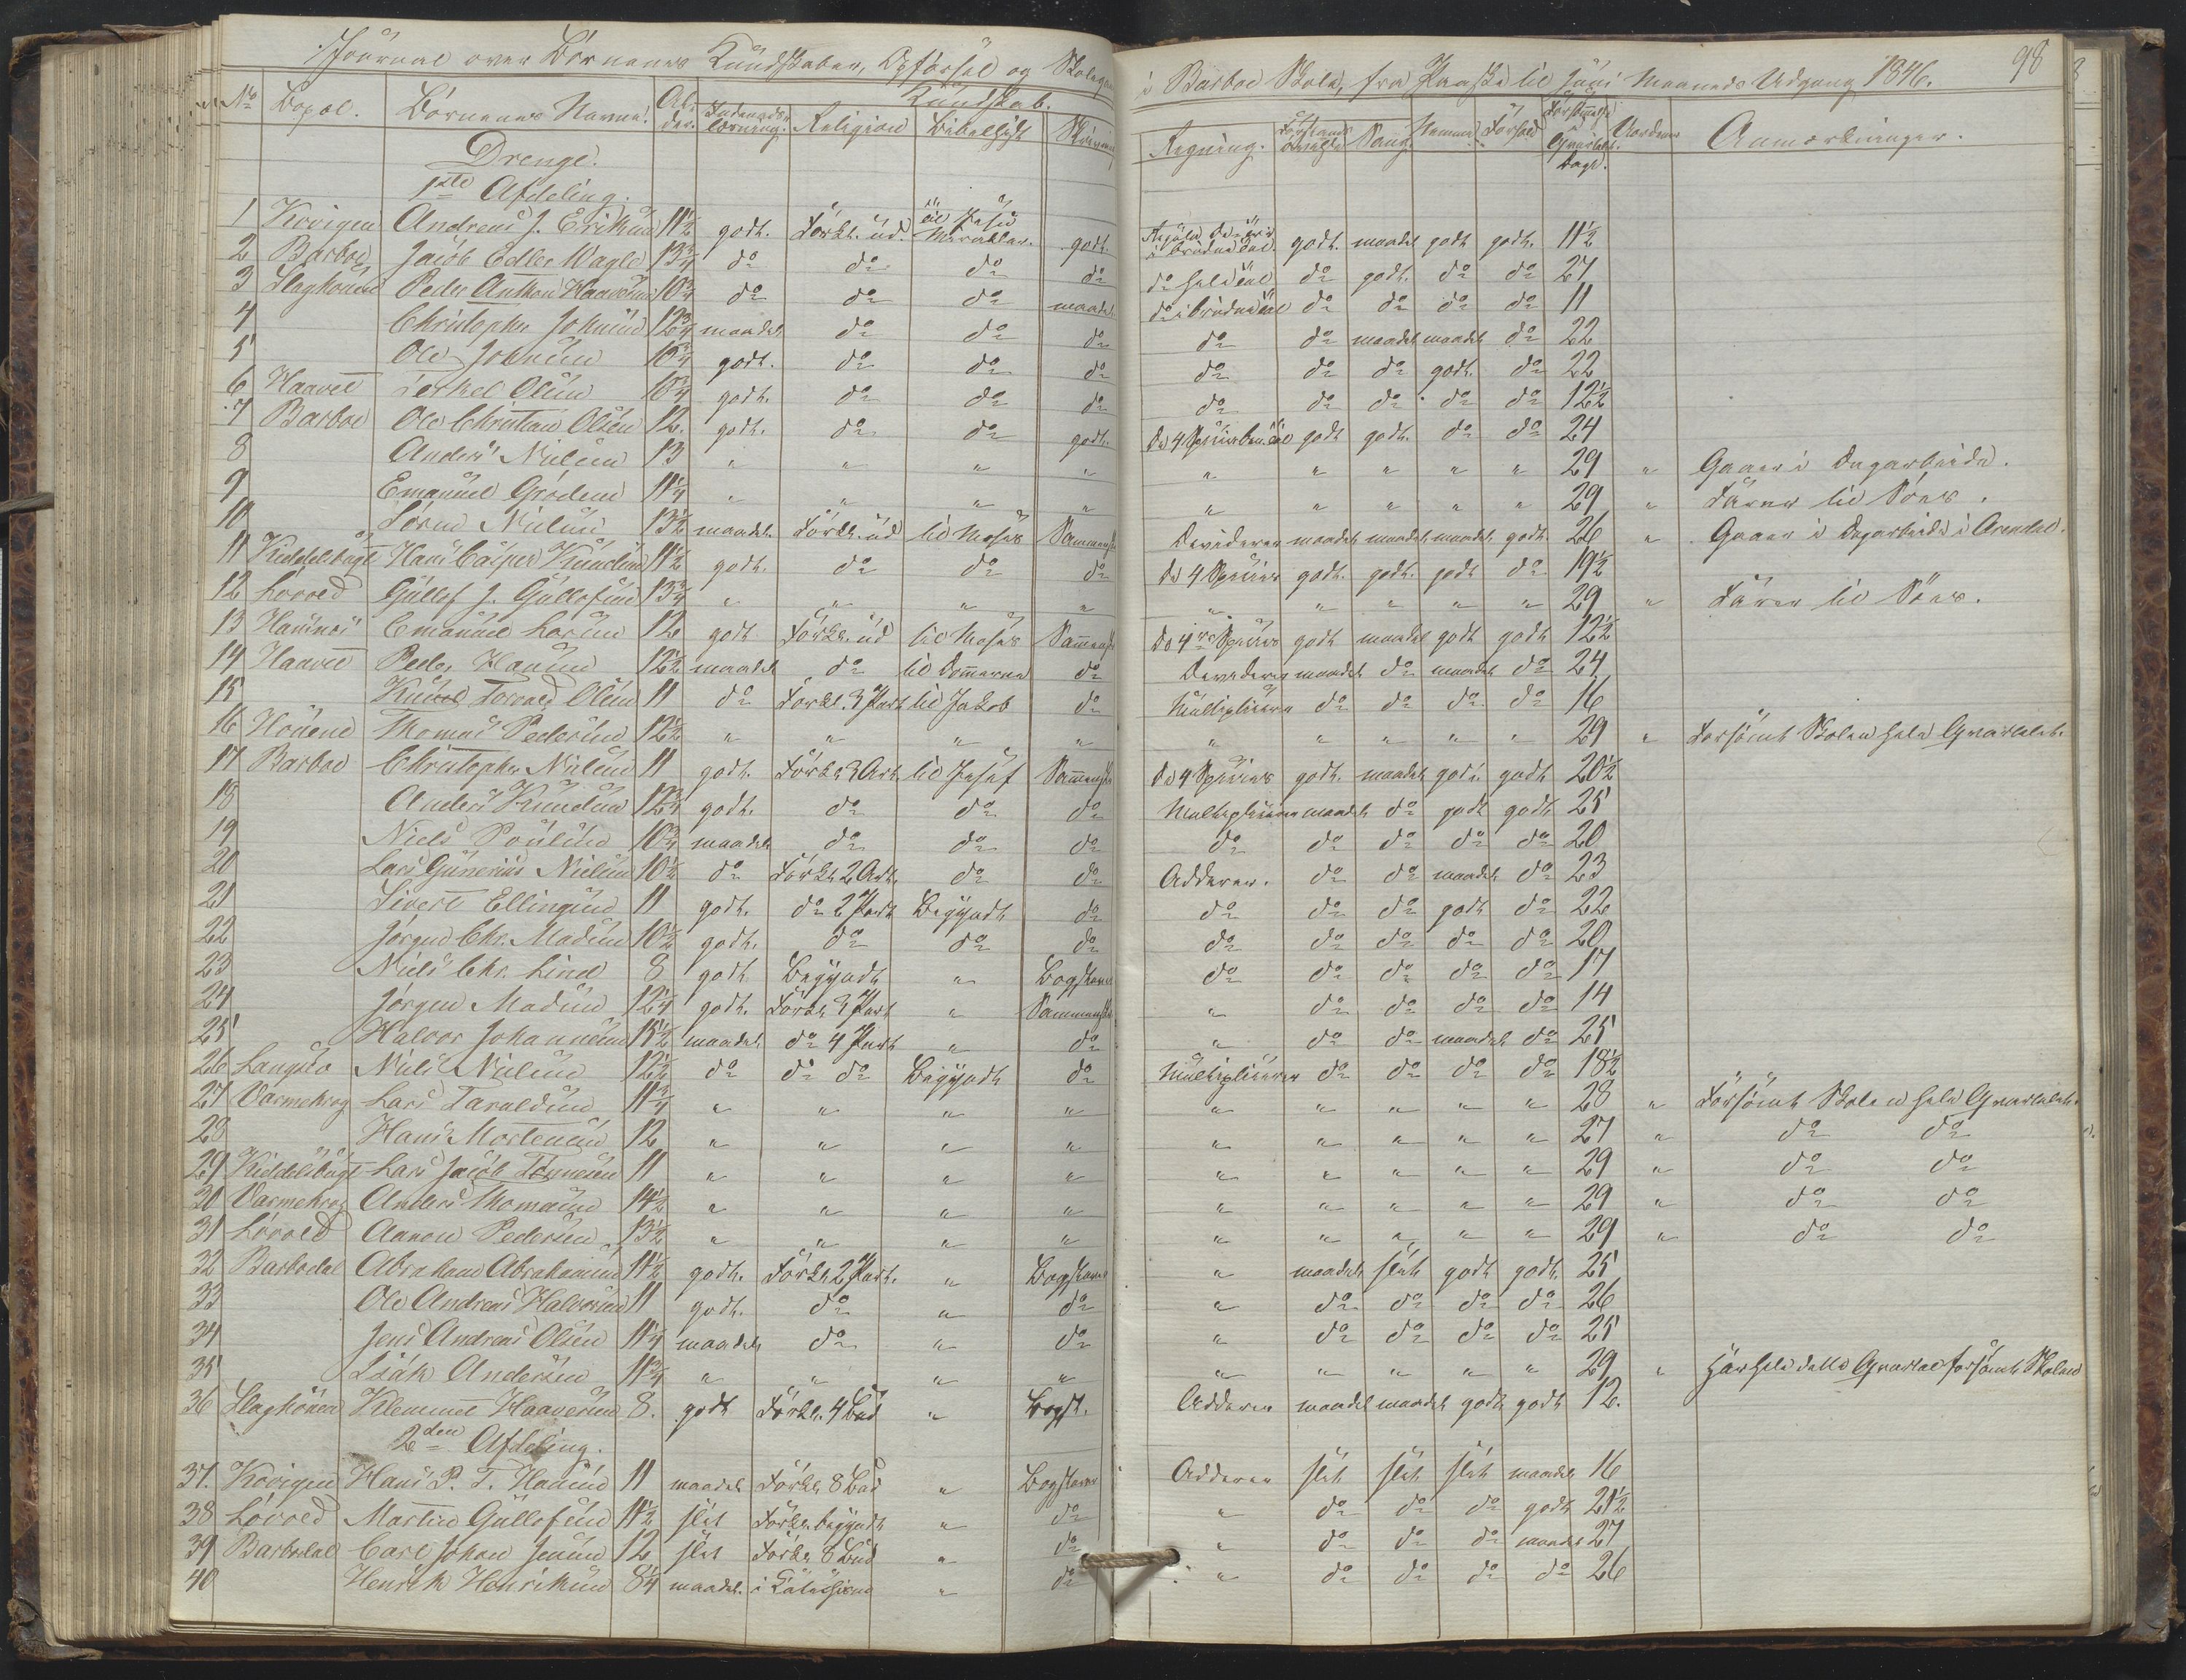 Journal over Börnenes Kundskaber, Opförsel og Skolegang i Barboe Skole, fra Paaske til Juni Maaneds Udgang 1846. 98
No Bopæl. Börnenes Navne. Alder. Kundskab.
Indenadslæsning. Religion Bibelhist Skrivning Regning. Forstands övelse Sang. Nemme Forhold Forsömmelse Qvartalet. Dage. Aarsagen Anmærkninger.
Drenge.
1ste Afdeling.
1 Kovigen Andreas J. Eriksen 11½ godt. Forkl. ud. til Jesu Mirakler. godt. i brudne Tal. godt. maadel godt godt. 11½
2 Barboe Jacob Edler Wagle 13¾ do do do do do hele Tal do godt. do do 27
3 Slaghouen Peder Anthon Haavorsen 10¾ do do do maadel do i brudne Tal do do do do 11
4 Christopher Johnsen 12¾ maadel do do do do do maadel maadel do 22
5 Ole Johnsen 10¾ godt. do do do do do do godt. do 22
6 Haavet Terkel Olsen 10¾ godt. do do do do do do do do 12½
7 Barboe Ole Christian Olsen 12. godt. do do godt. De 4 Species ben. tal godt godt. do do 24
8 Anders Nielsen 13 " " " " " " " " " 29 " Gaaer i Dagarbeide.
9 Emanuel Grödem 11¼ " " " " " " " " " 29 " Farer til Söes.
10 Sören Nielsen 13½ maadel. Forkl. ud til Moses Sammensk Dividerer maadel maadel maadel godt. 26 " Gaaer i Dagarbeide i Arendal.
11 Kiddelsbugt Hans Casper Knudsen 11½ godt. do do do De 4 Species godt. godt. godt do 19½
12 Lövold Gullef J. Gullefsen 13¾ " " " " " " " " " 29 " Farer til Söes.
13 Hausnes Emanuel Larsen 12 godt Forkl. ud til Moses Sammensk De 4re Species godt maadel godt godt 12½
14 Haavet Peder Hansen 12½ maadel do til Dommerne do Dividerer maadel do maadel do 24
15 Knud Torvald Olsen 11 do Forkl. 3 Part til Jakob do Multiplicerer do do do do 16
16 Thomas Pedersen 12½ " " " " " " " " " 29 " Forsömt Skolen hele Qvartalet.
17 Barboe Christopher Nielsen 11 godt. Forkl. 3 Art. til Josef Sammensk De 4 Species godt. maadel godt. godt 20½
18 Anders Knudsen 12¾ godt. do do do Multiplicerer maadel do godt godt 25
19 Niels Poulsen 10¾ maadel do do do do do do do do 20
20 Lars Gunerius Nielsen 10½ do Forkl. 2 Art. do do Adderer. do do maadel do 23
21 Sivert Ellingsen 11 godt. do 2 Part Begyndt do do do do godt do 22
22 Jörgen Chr. Madsen 10½ godt. do do do do do do do do 20
23 Niels Chr. Lind 8 godt Begyndt " Bogstaver do do do do do 17
24 Jörgen Madsen 12¼ godt. Forkl. 3 Part " Sammensk " do do do do 14
25 Halvor Johannesen 15½ maadel. do 4 Part " do " do do maadel do 25
26 Langsæ Niels Nielsen 12½ do do do Begyndt do Multiplicerer do do do do 18½
27 Varmekrog Lars Taraldsen 11¾ " " " " " " " " " 28 " Forsömt Skolen hele Qvartalet.
28 Hans Mortensen 12 " " " " " " " " " 27 " do do
29 Kiddelsbugt Lars Jacob Tönnesen 11 " " " " " " " " " 29 " do do
30 Varmekrog Anders Thomasen 14½ " " " " " " " " " 29 " do do
31 Lövold Aanon Pedersen 13½ " " " " " " " " " 29 " do do
32 Barbodal Abraham Abrahamsen 11½ godt. Forkl. 2 Part. " Bogstaver " maadel slet godt godt. 25
33 Ole Andreas Halvorsen 11 godt. do " do " do do do do 26
34 Jens Andreas Olsen 11¼ maadel do " do " do do do do 25
35 Isak Andersen 11¾ " " " " " " " " " 29 " Har hele dette Qvartal forsömt Skolen
36 Slaghouen Klemmet Haaversen 8. godt Forkl. 4 Bud " Bogst. Adderer maadel maadel godt godt 12.
2den Afdeling.
37. Kovigen Hans P. T. Hansen 11 maadel Forkl. 8 Bud " Bogstaver Adderer slet slet slet maadel 16
38 Lövold Martin Gullefsen 11½ slet Forkl. begyndt " do " do do do godt 21½
39 Barbodal Carl Johan Jensen 12 slet Forkl. 8 Bud " do " do do do maadel 27
40 Henrik Henriksen 8¼ maadel. i " do " do do do do 26